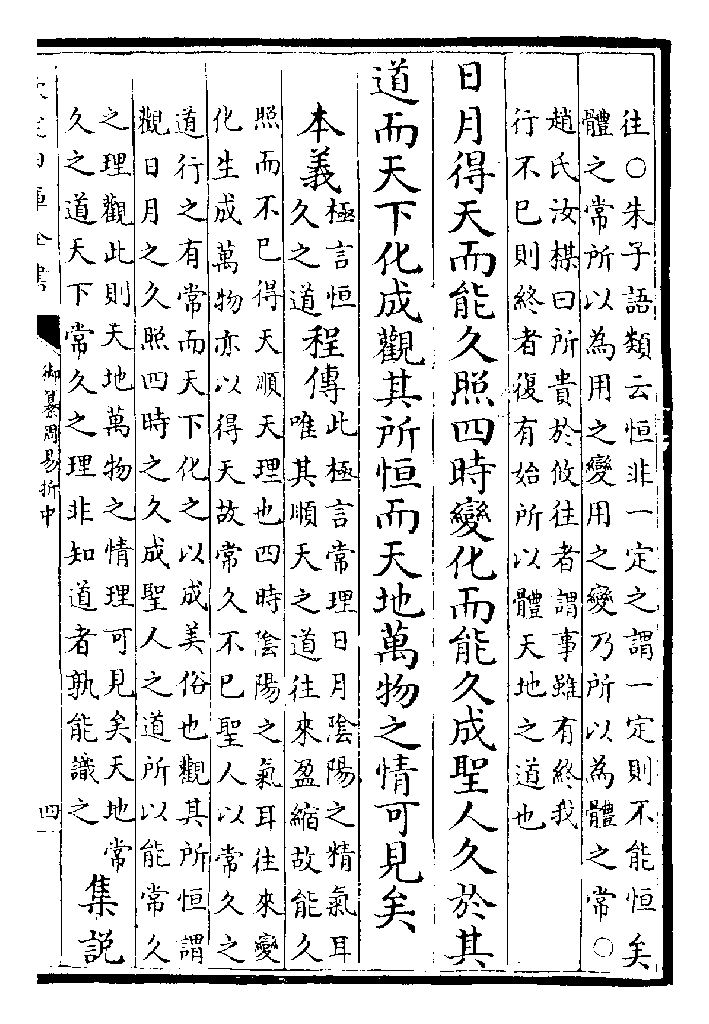 往○朱子語類云恒非一定之謂一定則不能恒矣
體之常所以為用之變用之變乃所以為體之常○
趙氏汝楳曰所貴於攸往者謂事雖有終我
行不已則終者復有始所以體天地之道也
日月得天而能久照四時變化而能久成聖人久於其
道而天下化成觀其所恒而天地萬物之情可見矣
本義極言恒
久之道程傳此極言常理日月陰陽之精氣耳
唯其順天之道往來盈縮故能久
照而不已得天順天理也四時陰陽之氣耳往來變
化生成萬物亦以得天故常久不已聖人以常久之
道行之有常而天下化之以成美俗也觀其所恒謂
觀日月之久照四時之久成聖人之道所以能常久
之理觀此則天地萬物之情理可見矣天地常
久之道天下常久之理非知道者孰能識之集說
御纂周易折中
四